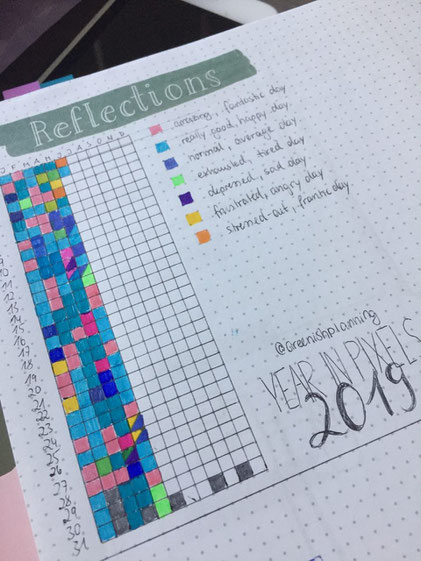 Reflections
J F M A M J J A S O N D
amazing, fantastic day
really good, happy day
normal, average day
exhausted, tired day
depressed, sad day
frustrated, angry day
stressed-out, frantic day
9
10
11
12
13
14
15
16
17
18
19
20
21
22
23
24
25
26
27
28
29
30
31
@Greenishplanning
YEAR IN PIXELS
2019